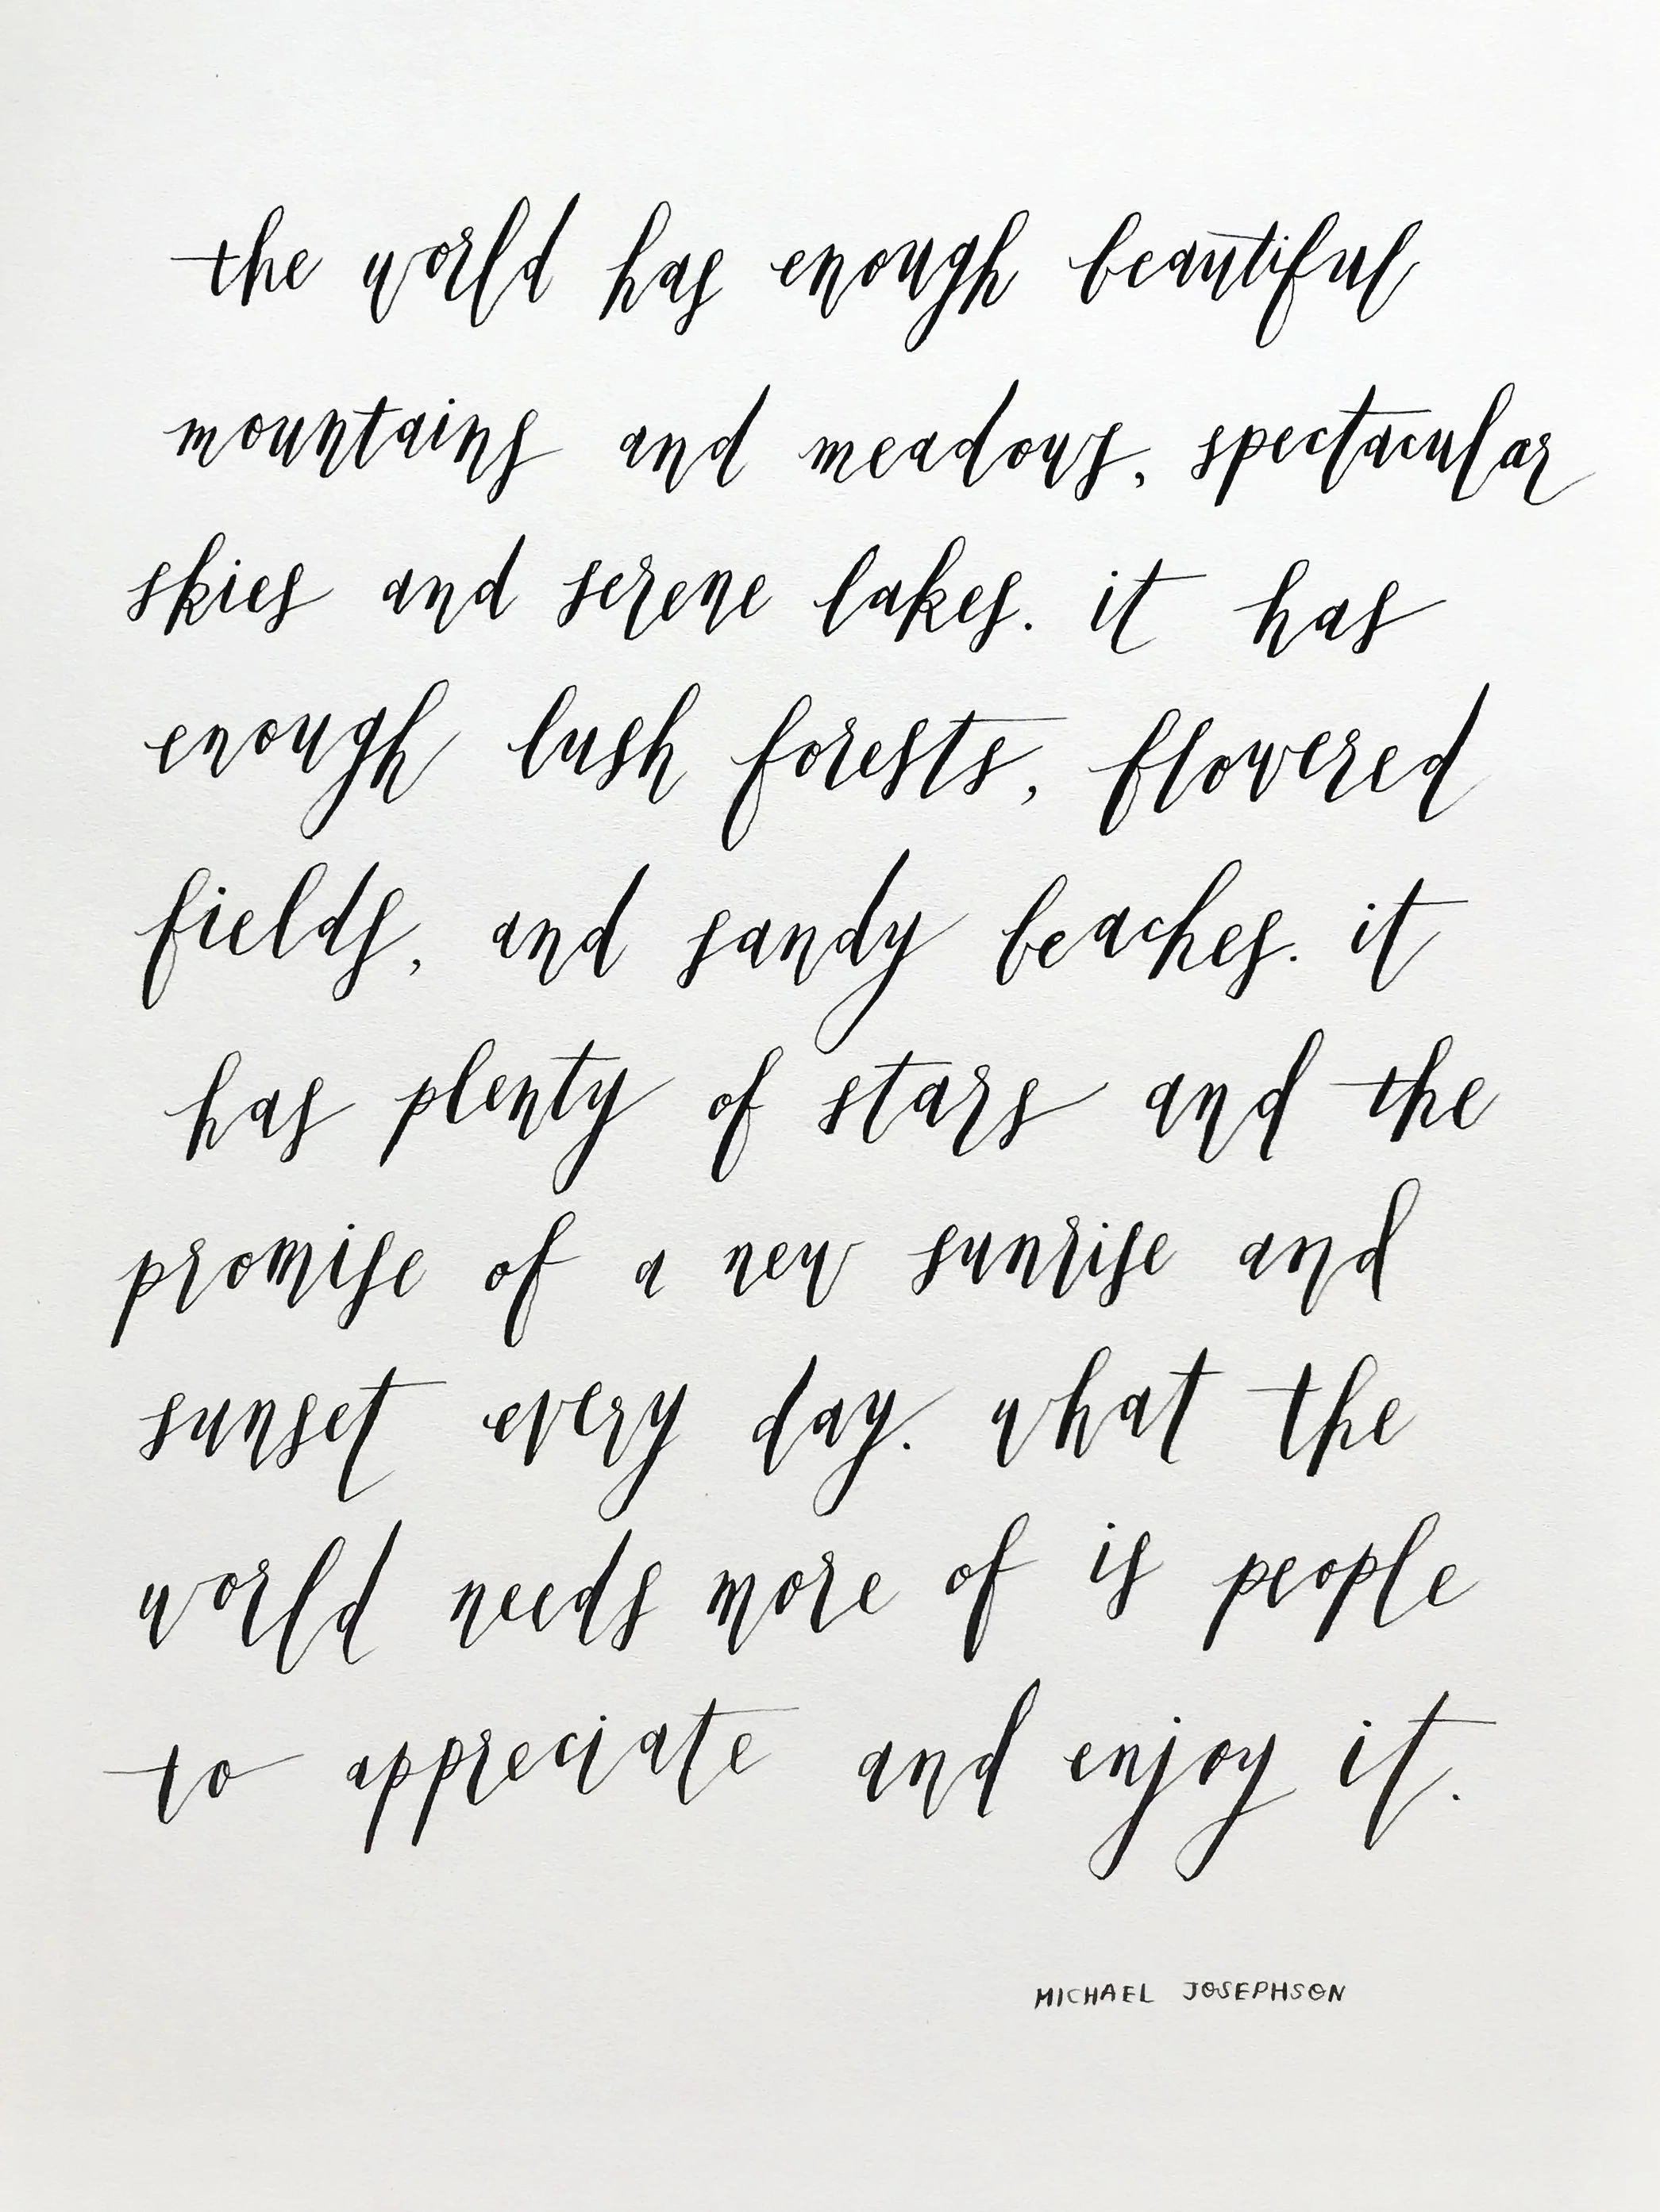 the world has enough beautiful
mountains and meadows, spectacular
skies and serene lakes. it has
enough lush forests, flowered
fields, and sandy beaches. it
has plenty of stars and the
promise of a new sunrise and
sunset every day. what the
world needs more of is people
to appreciate and enjoy it.
MICHAEL JOSEPHSON